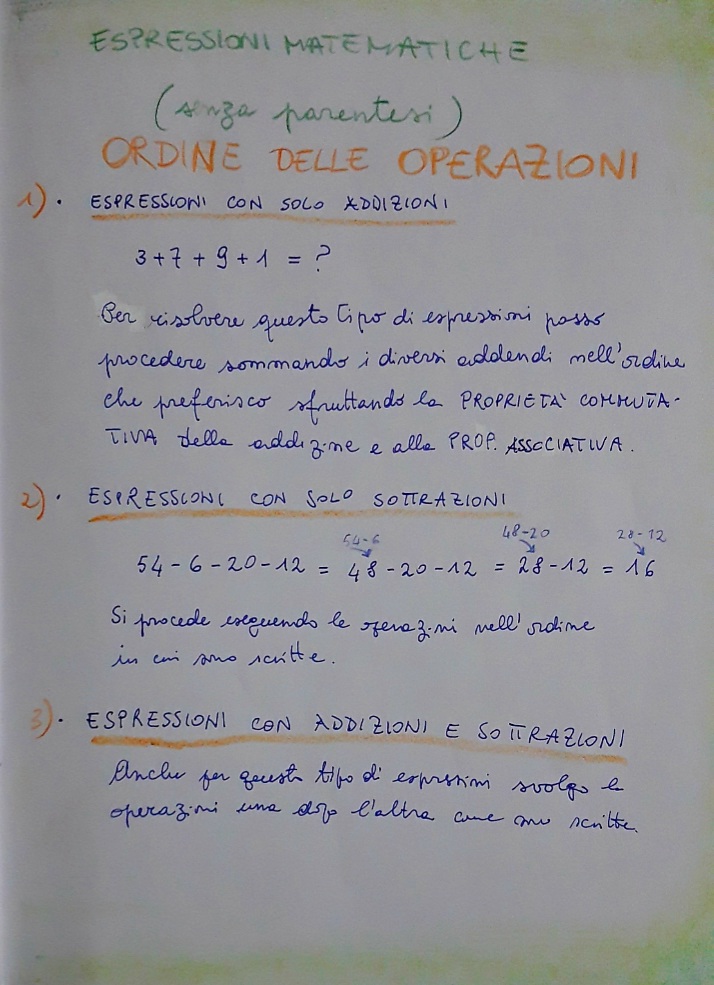 ESPRESSIONI MATEMATICHE
(senza parentesi)
ORDINE DELLE OPERAZIONI
1). ESPRESSIONI CON SOLO ADDIZIONI
3+7+9+1 = ?
Per risolvere questo tipo di espressioni posso
procedere sommando i diversi addendi nell'ordine
che preferisco sfruttando la PROPRIETÀ COMMUTA-
TIVA della addizione e alla PROP. ASSOCIATIVA.
2). ESPRESSIONI CON SOLO SOTTRAZIONI
54-6 48-20 28-12
54-6-20-12 = 48-20-12 = 28-12 = 16
Si procede eseguendo le operazioni nell'ordine
in cui sono scritte.
3). ESPRESSIONI CON ADDIZIONI E SOTTRAZIONI
Anche per questo tipo di espressioni svolgo le
operazioni una dopo l'altra come sono scritte.